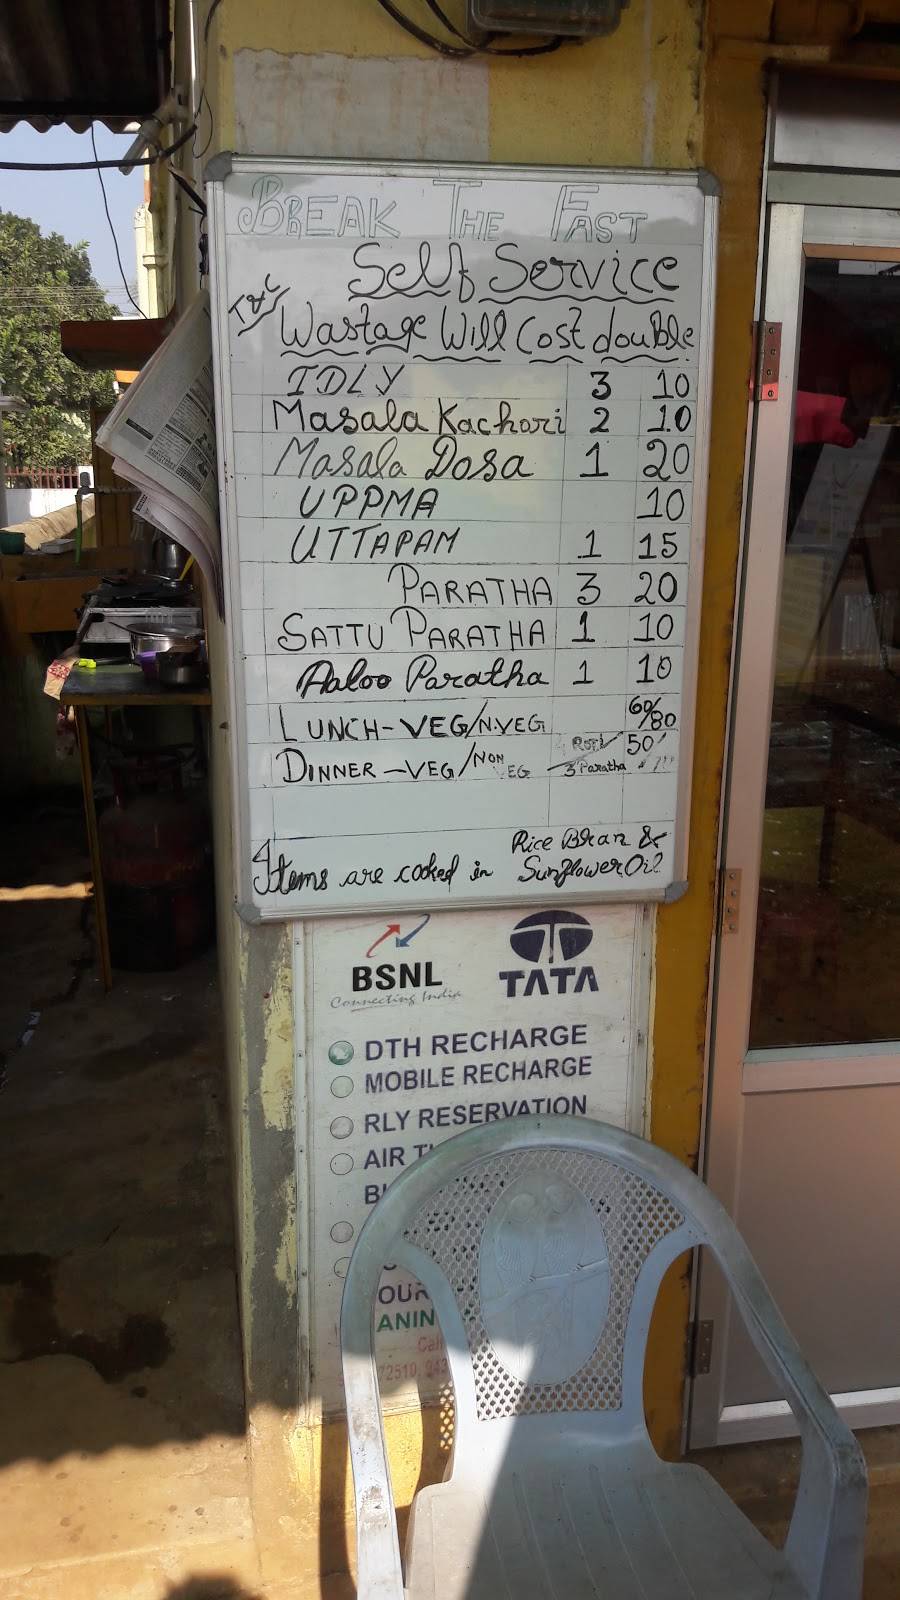 BREAK THE FAST
Self Service
T&C
Wastage Will Cost double
IDLY 3 10
Masala Kachori 2 10
Masala Dosa 1 20
UPPMA 10
UTTAPAM 1 15
PARATHA 3 20
SATTU PARATHA 1 10
Aaloo Paratha 1 10
LUNCH-VEG/N.VEG 60/80
DINNER-VEG/NON VEG Roti 50
3 Paratha
Items are cooked in Rice Bran & Sunflower Oil
BSNL
Connecting India
TATA
DTH RECHARGE
MOBILE RECHARGE
RLY RESERVATION
AIR
OUR
ANIN
Call